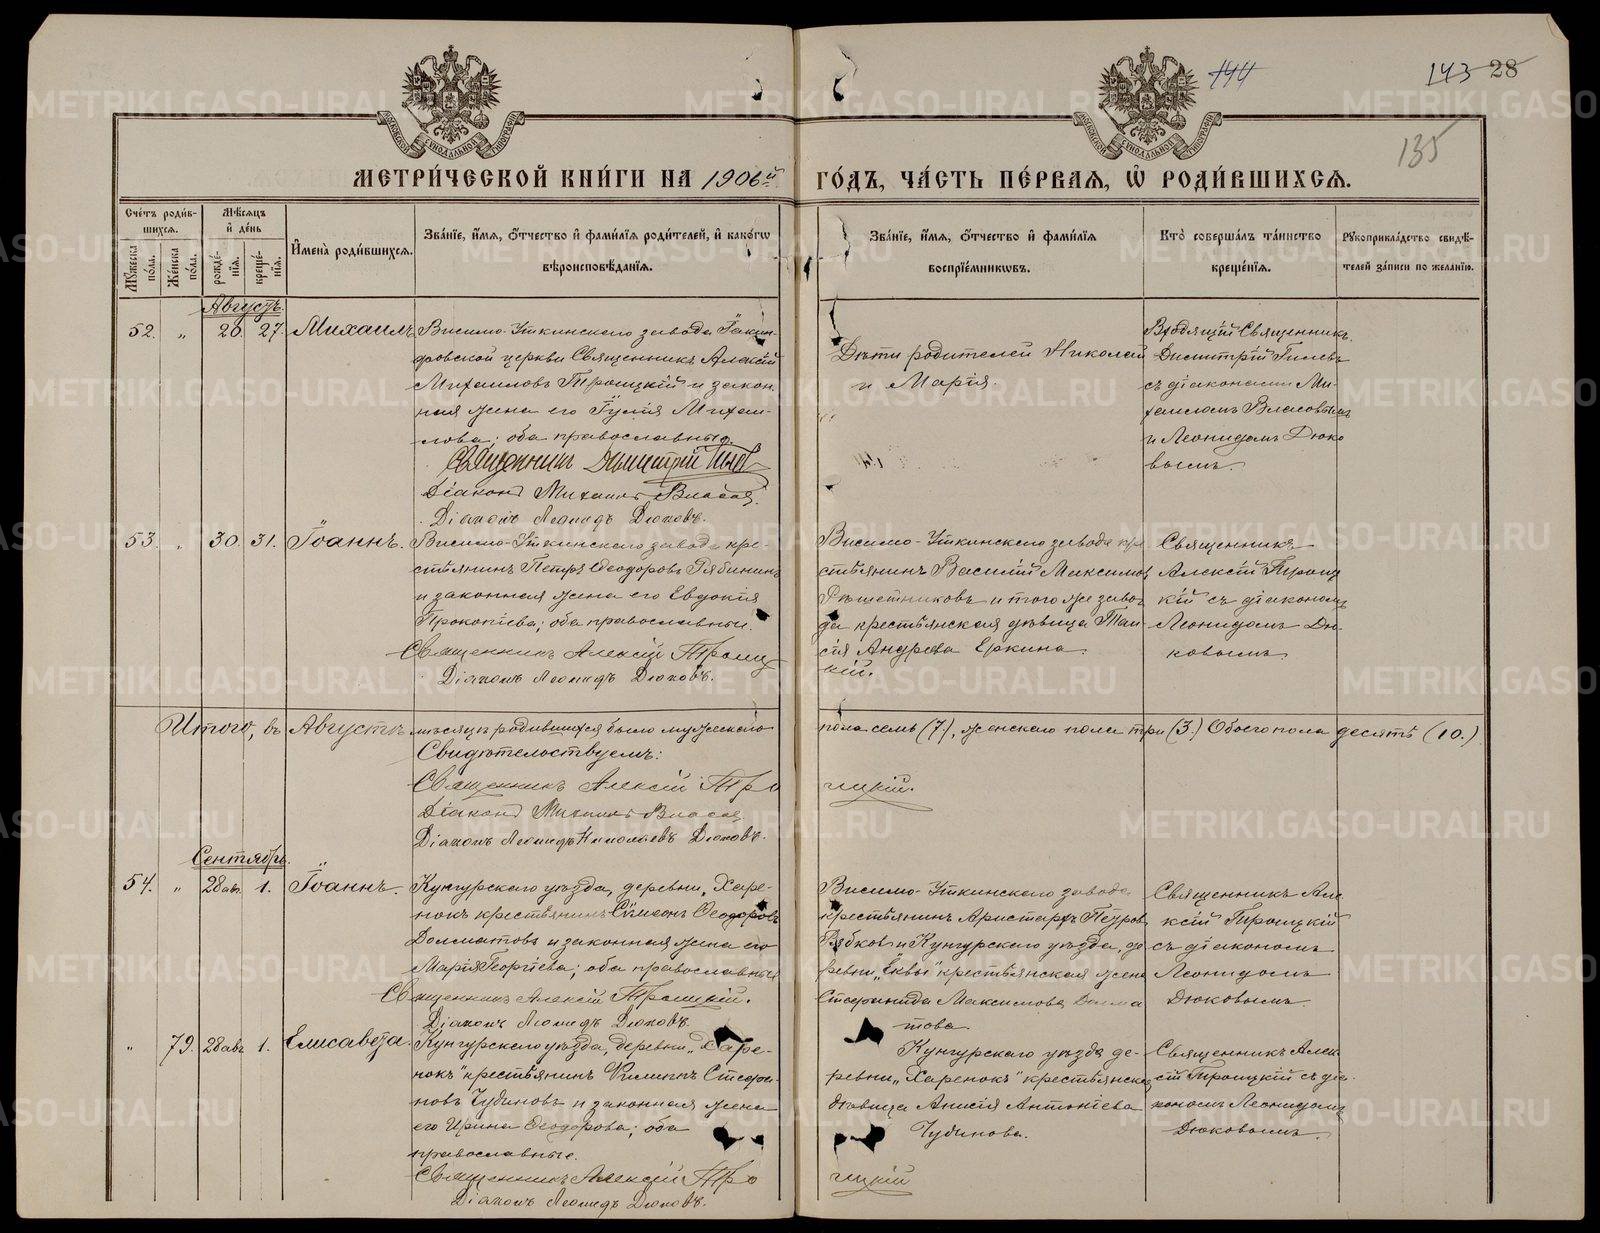 144
143 28
135
МЕТРИ́ЧЕСКОЙ КНИ́ГИ НА 1906й ГО́ДЪ, ЧА́СТЬ ПЕ́РВАЯ, Ѡ РОДИ́ВШИХСЯ.
Сче́тъ роди́вшихся.
Му́жеска по́ла.
Же́нска по́ла.
Мѣ́сяцъ и де́нь
рожде́нія.
креще́нія.
Имена̀ роди́вшихся.
Зва́ніе, и́мя, о́тчество и фами́лія роди́телей, и како́гѡ
вѣроисповѣ́данія.
Зва́ніе, и́мя, о́тчество и фами́лія
воспріе́мниковъ.
Кто̀ соверша́лъ та́инство
креще́нія.
Рукоприкла́дство свидѣ́-
телей за́писи по жела́нію.
Августъ.
52. „ 26. 27. Михаилъ
Висимо-Уткинскаго завода Іакин-
фовской церкви Священникъ Алексій
Михаиловъ Троицкій и закон-
ная жена его Іулія Михаи-
лова; оба православные.
Священникъ Димитрій
Діаконъ Михаилъ Власов.
Діаконъ Леонидъ Дюковъ.
Дѣти родителей Николай
и Марія.
Входящій Священникъ
Димитрій Гилевъ
съ діаконами Ми-
хаиломъ Власовымъ
и Леонидомъ Дюко
вымъ.
53. „ 30. 31. Іоаннъ.
Висимо-Уткинскаго завода кре-
стьянинъ Петръ Ѳеодоровъ Рябининъ
и законная жена его Евдокія
Прокопіева; оба православные.
Священникъ Алексій Троиц
кій.
Діаконъ Леонидъ Дюковъ.
Висимо-Уткинскаго завода кре
стьянинъ Василій Максимов
Рѣшетниковъ и того же заво
да крестьянская дѣвица Таи-
сія Андреева Еркина.
Священникъ
Алексій Троиц
кій съ діакономъ
Леонидомъ Дю-
ковымъ.
Итого, въ Августѣ мѣсяцѣ родившихся было мужескаго пола семь (7), женскаго пола три (3.) Обоего пола десять (10.)
Свидѣтельствуемъ:
Священникъ Алексій Тро ицкій.
Діаконъ Михаилъ Власов
Діаконъ Леонидъ Николаевъ Дюковъ.
Сентябрь.
54. „ 28 авг. 1. Іоаннъ.
Кунгурскаго уѣзда, деревни „Харе-
нокъ крестьянинъ Сѷмеонъ Ѳеодоровъ
Долматовъ и законная жена его
Марія Георгіева; оба православные
Священникъ Алексій Троицкій.
Діаконъ Леонидъ Дюковъ.
Висимо-Уткинскаго завода
крестьянинъ Аристархъ Петров
Рябковъ и Кунгурскаго уѣзда, де
ревни „Ёквы" крестьянская жена
Стефанида Максимова Долма
това.
Священникъ Але
ксій Троицкій
съ діакономъ
Леонидомъ
Дюковымъ.
„ 79. 28 авг 1. Елисавета.
Кунгурскаго уѣзда, деревни „Харе-
нокъ" крестьянинъ Филиппъ Стефа-
новъ Чудиновъ и законная жена
его Ирина Ѳеодорова; оба
православные.
Священникъ Алексій Тро ицкій
Діаконъ Леонидъ Дюковъ.
Кунгурскаго уѣзда де-
ревни „Харенокъ" крестьянская
дѣвица Анисія Антоніева
Чудинова.
Священникъ Алек
сій Троицкій съ діа-
кономъ Леонидомъ
Дюковымъ.
METRIKI.GASO-URAL.RU